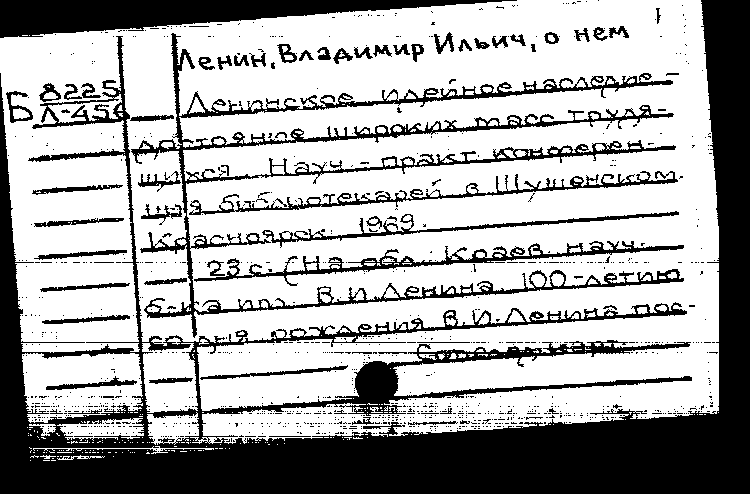 Ленин, Владимир Ильич, о нем
Б 8225
Л-456
Ленинское идейное наследие -
достояние широких масс трудя-
щихся. Науч.-практ. конферен-
ция библиотекарей в Шушенском.
Красноярск, 1969.
23 с. (На обл.: Краев. науч.
б-ка им. В.И.Ленина. 100-летию
со дня рождения В.И.Ленина пос-